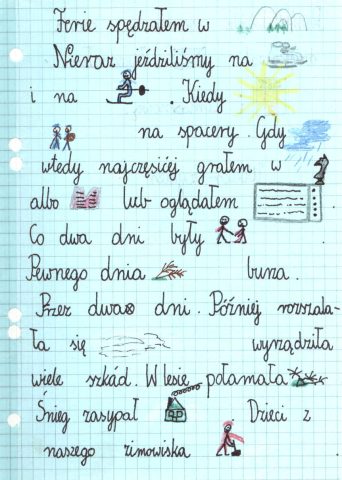 Ferie spędzałem w
Nieraz jeździliśmy na
i na . Kiedy
na spacery. Gdy
wtedy najczęsićej grałem w
albo lub oglądałem
Co dwa dni były .
Pewnego dnia burza.
Przez dwa dni. Później rozszala-
ła się wyrządziła
wiele szkód. W lesie połamała
Śnieg zasypał . Dzieci z
naszego zimowiska .